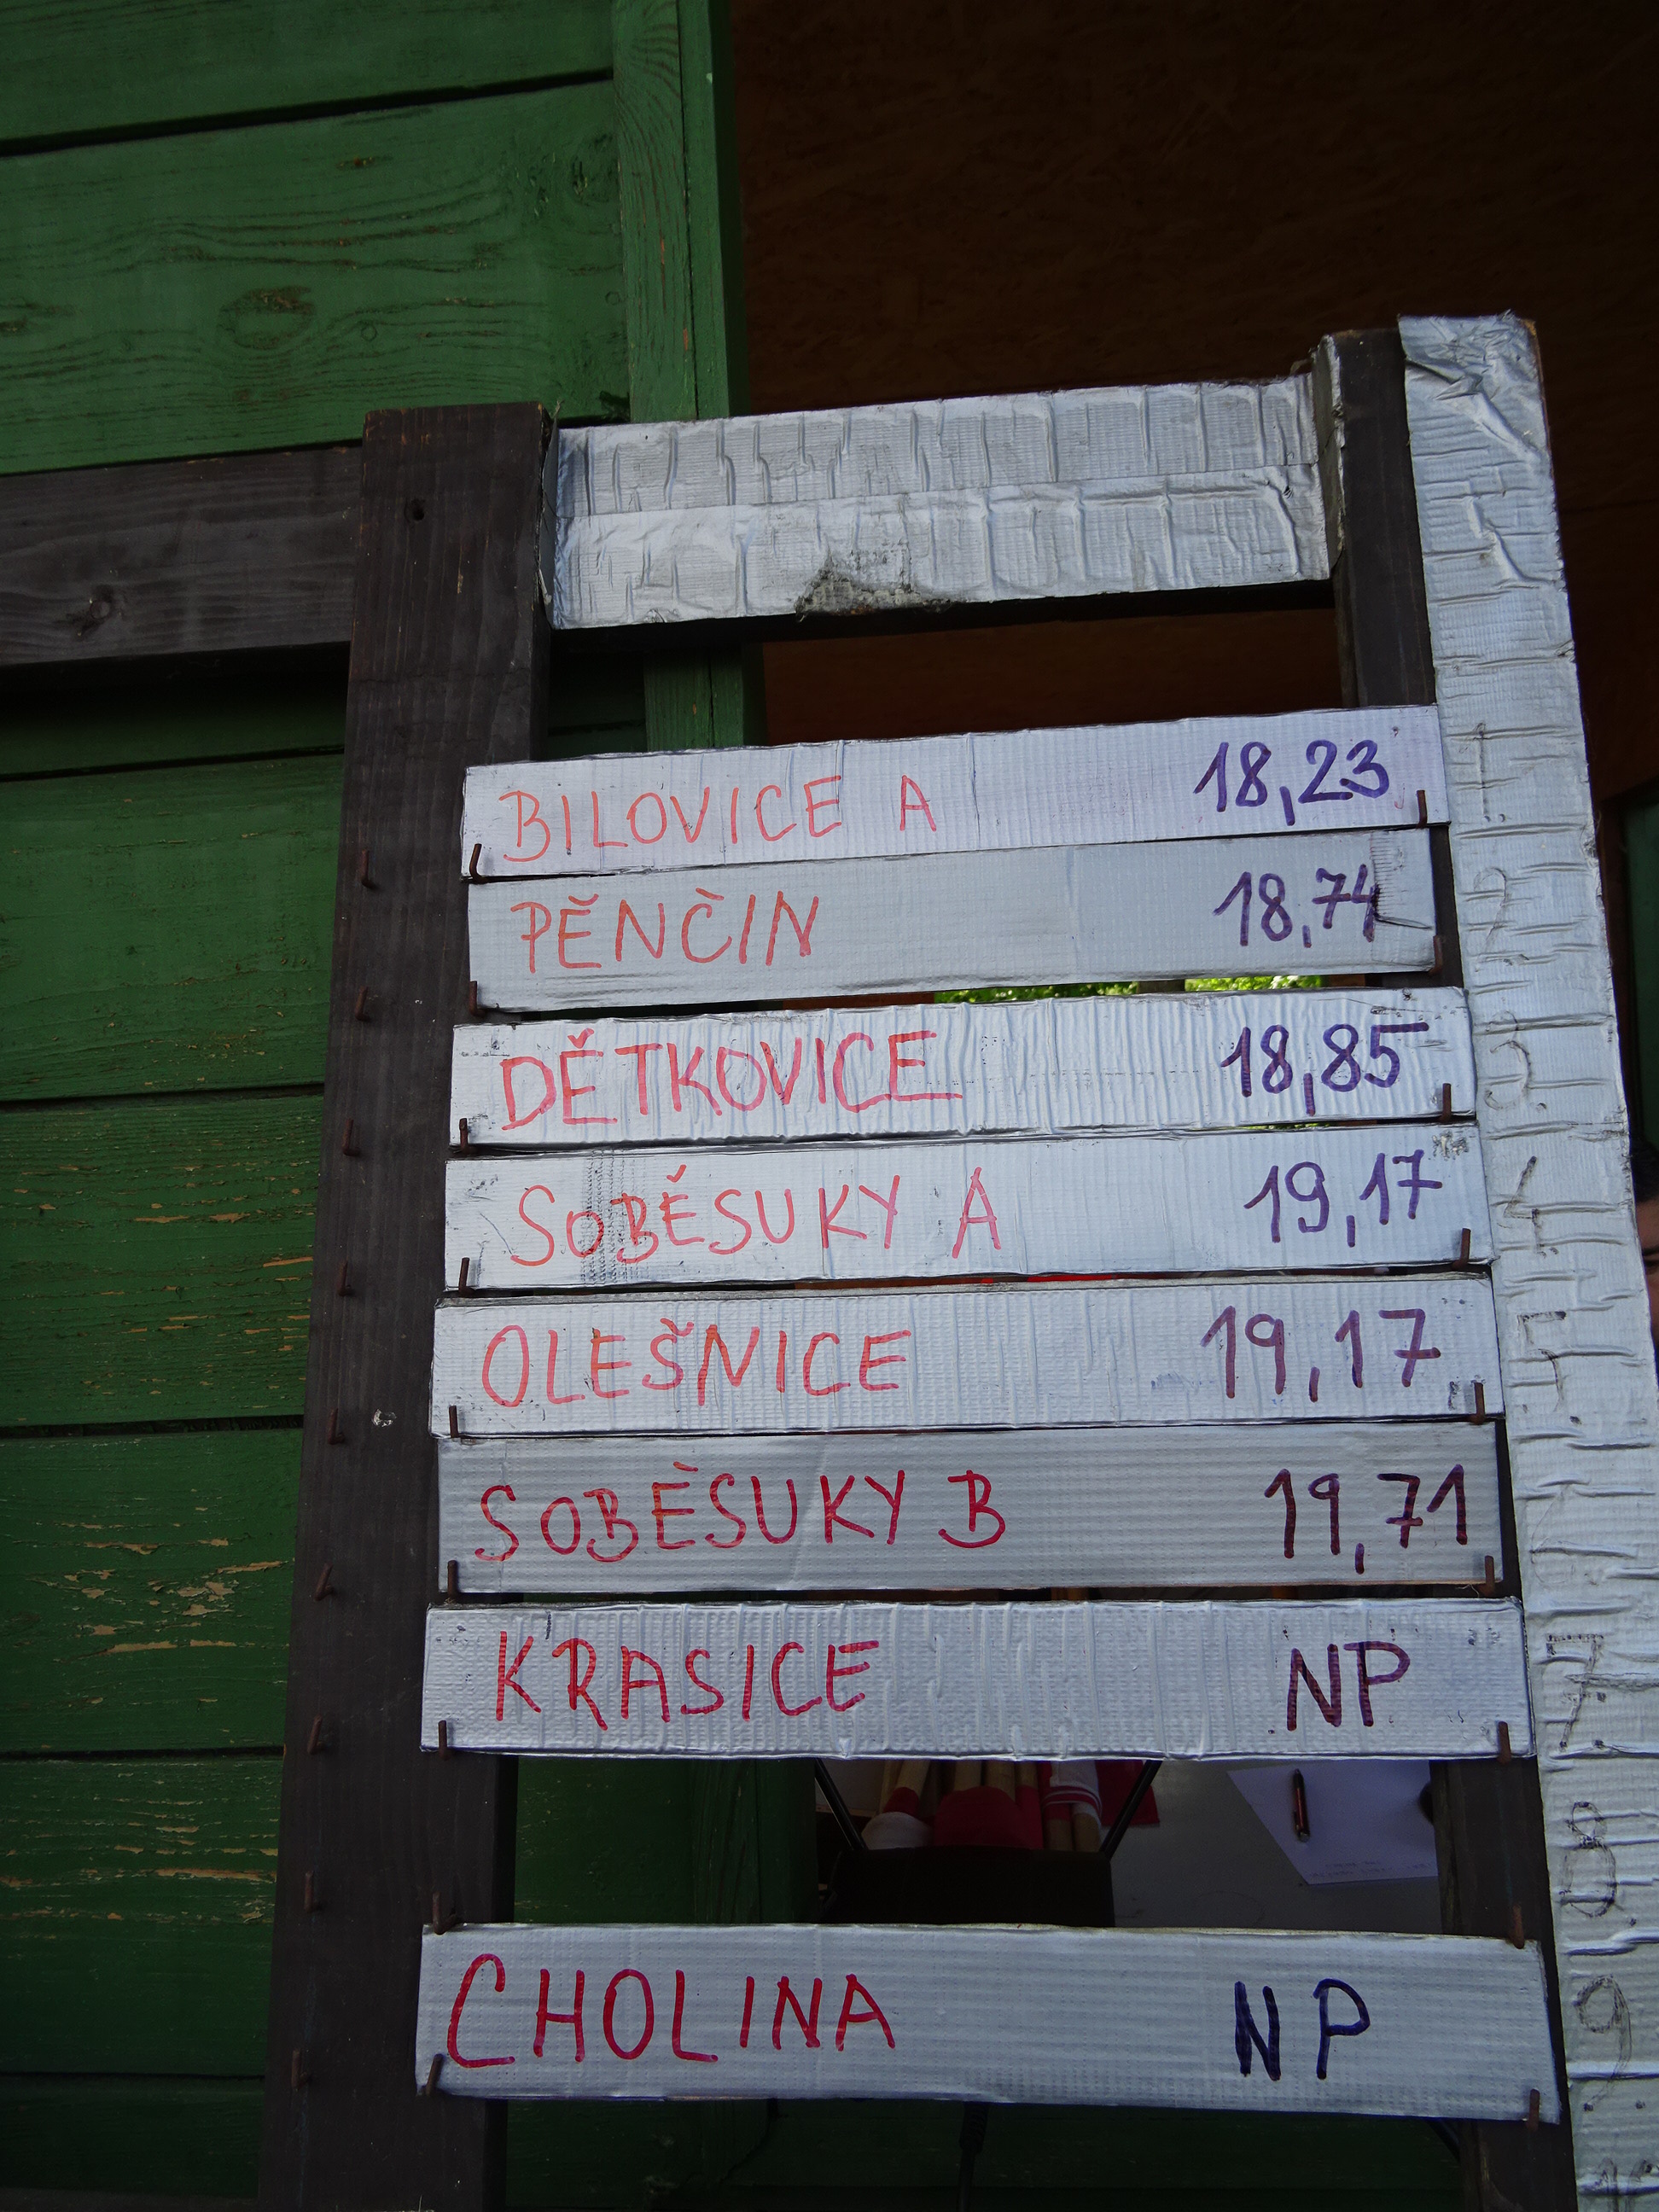 BILOVICE A 18,23 1.
PĚNČIN 18,74 2.
DĚTKOVICE 18,85 3.
SOBĚSUKY A 19,17 4.
OLEŠNICE 19,17 5.
SOBĚSUKY B 19,71
KRASICE NP 7.
8.
CHOLINA NP 9.